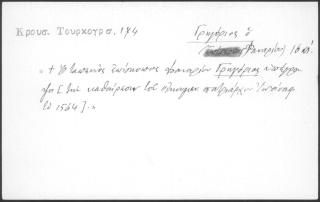 Κρουσ. Τουρκογρ. 174
Γρηγόριος ὁ
Φαναρίου 16 αἰ.
« + Ὁ ταπεινὸς ἐπίσκοπος Φαναρίου Γρηγόριος ὑπέγρα-
ψα [ τὴν καθαίρεσιν τοῦ πατριάρχου Ἰωάσαφ
τῷ 1564 ].»